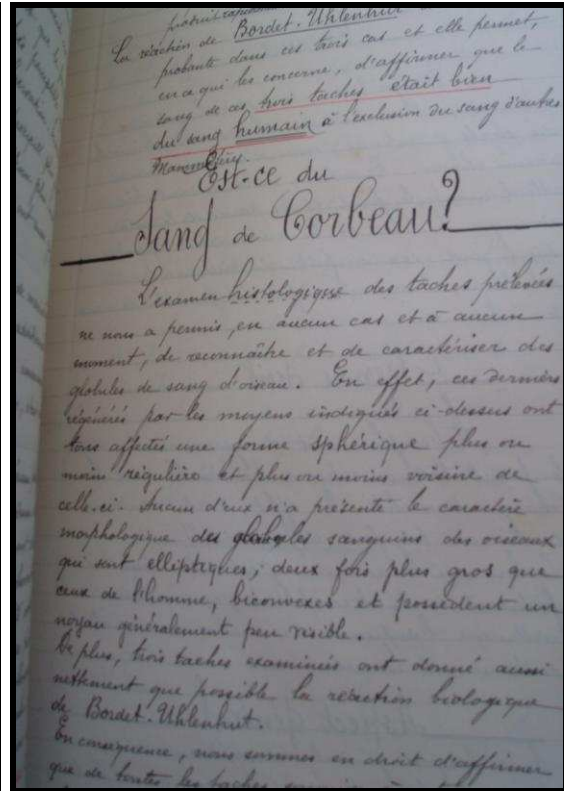 produit
La réaction de Bordet-Uhlenhut
probante dans ces trois cas et elle permet,
en ce qui les concerne, d'affirmer que le
sang de ces trois taches était bien
du sang humain à l'exclusion du sang d'autres
Est-ce du
Sang de Corbeau?
L'examen histologique des taches prélevées
ne nous a permis, en aucun cas et à aucun
moment, de reconnaître et de caractériser des
globules de sang d'oiseau. En effet, ces derniers
régénérés par les moyens indiqués ci-dessus ont
tous affectés une forme sphérique plus ou
moins régulière et plus ou moins voisine de
celle-ci. Aucun d'eux n'a présenté le caractère
morphologique des globules sanguins des oiseaux
qui sont elliptiques, deux fois plus gros que
ceux de l'homme, biconvexes et possèdent un
noyau généralement peu visible.
De plus, trois taches examinées ont donné aussi
nettement que possible la réaction biologique
de Bordet-Uhlenhut.
En conséquence, nous sommes en droit d'affirmer
que de toutes les taches